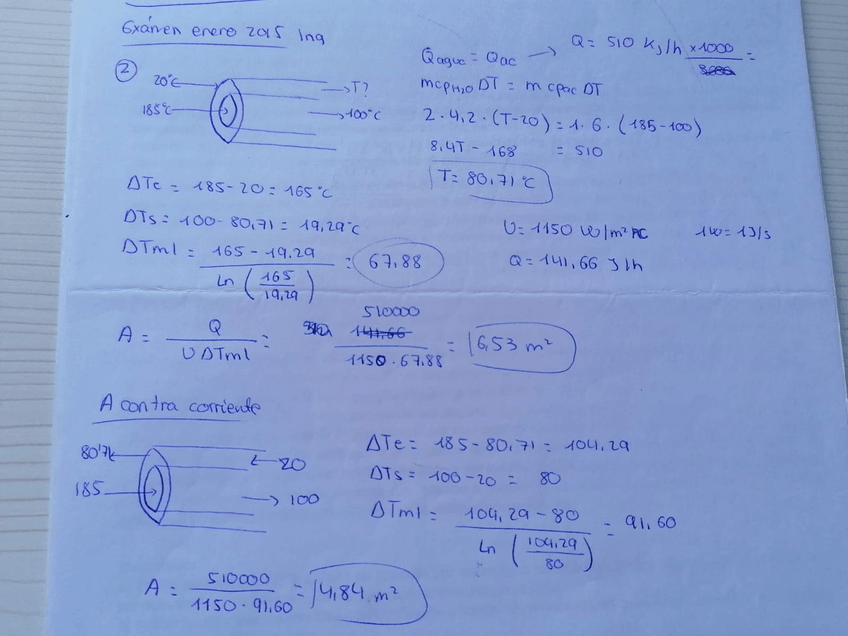 Exámen enero 2015 Ing
②
20°C → T?
185°C → 100°C
Qagua = Qac → Q = 510 KJ/h x1000 =
mcpH2O DT = m cpac DT
2 · 4,2 · (T-20) = 1 · 6 · (185-100)
8,4T - 168 = 510
T = 80,71 °C
ΔTe = 185-20 = 165°C
DTs = 100-80,71 = 19,29°C
DTml = 165 - 19,29 / Ln (165 / 19,29) = 67,88
U = 1150 W/m² ºC 1W = 1J/s
Q = 141,66 J/h
A = Q / U DTml = 510000 / 1150 · 67,88 = 6,53 m²
141,66
A contra corriente
80'71 ← 20
185 → 100
ΔTe = 185 - 80,71 = 104,29
ΔTs = 100 - 20 = 80
ΔTml = 104,29 - 80 / Ln (104,29 / 80) = 91,60
A = 510000 / 1150 · 91,60 = 4,84 m²